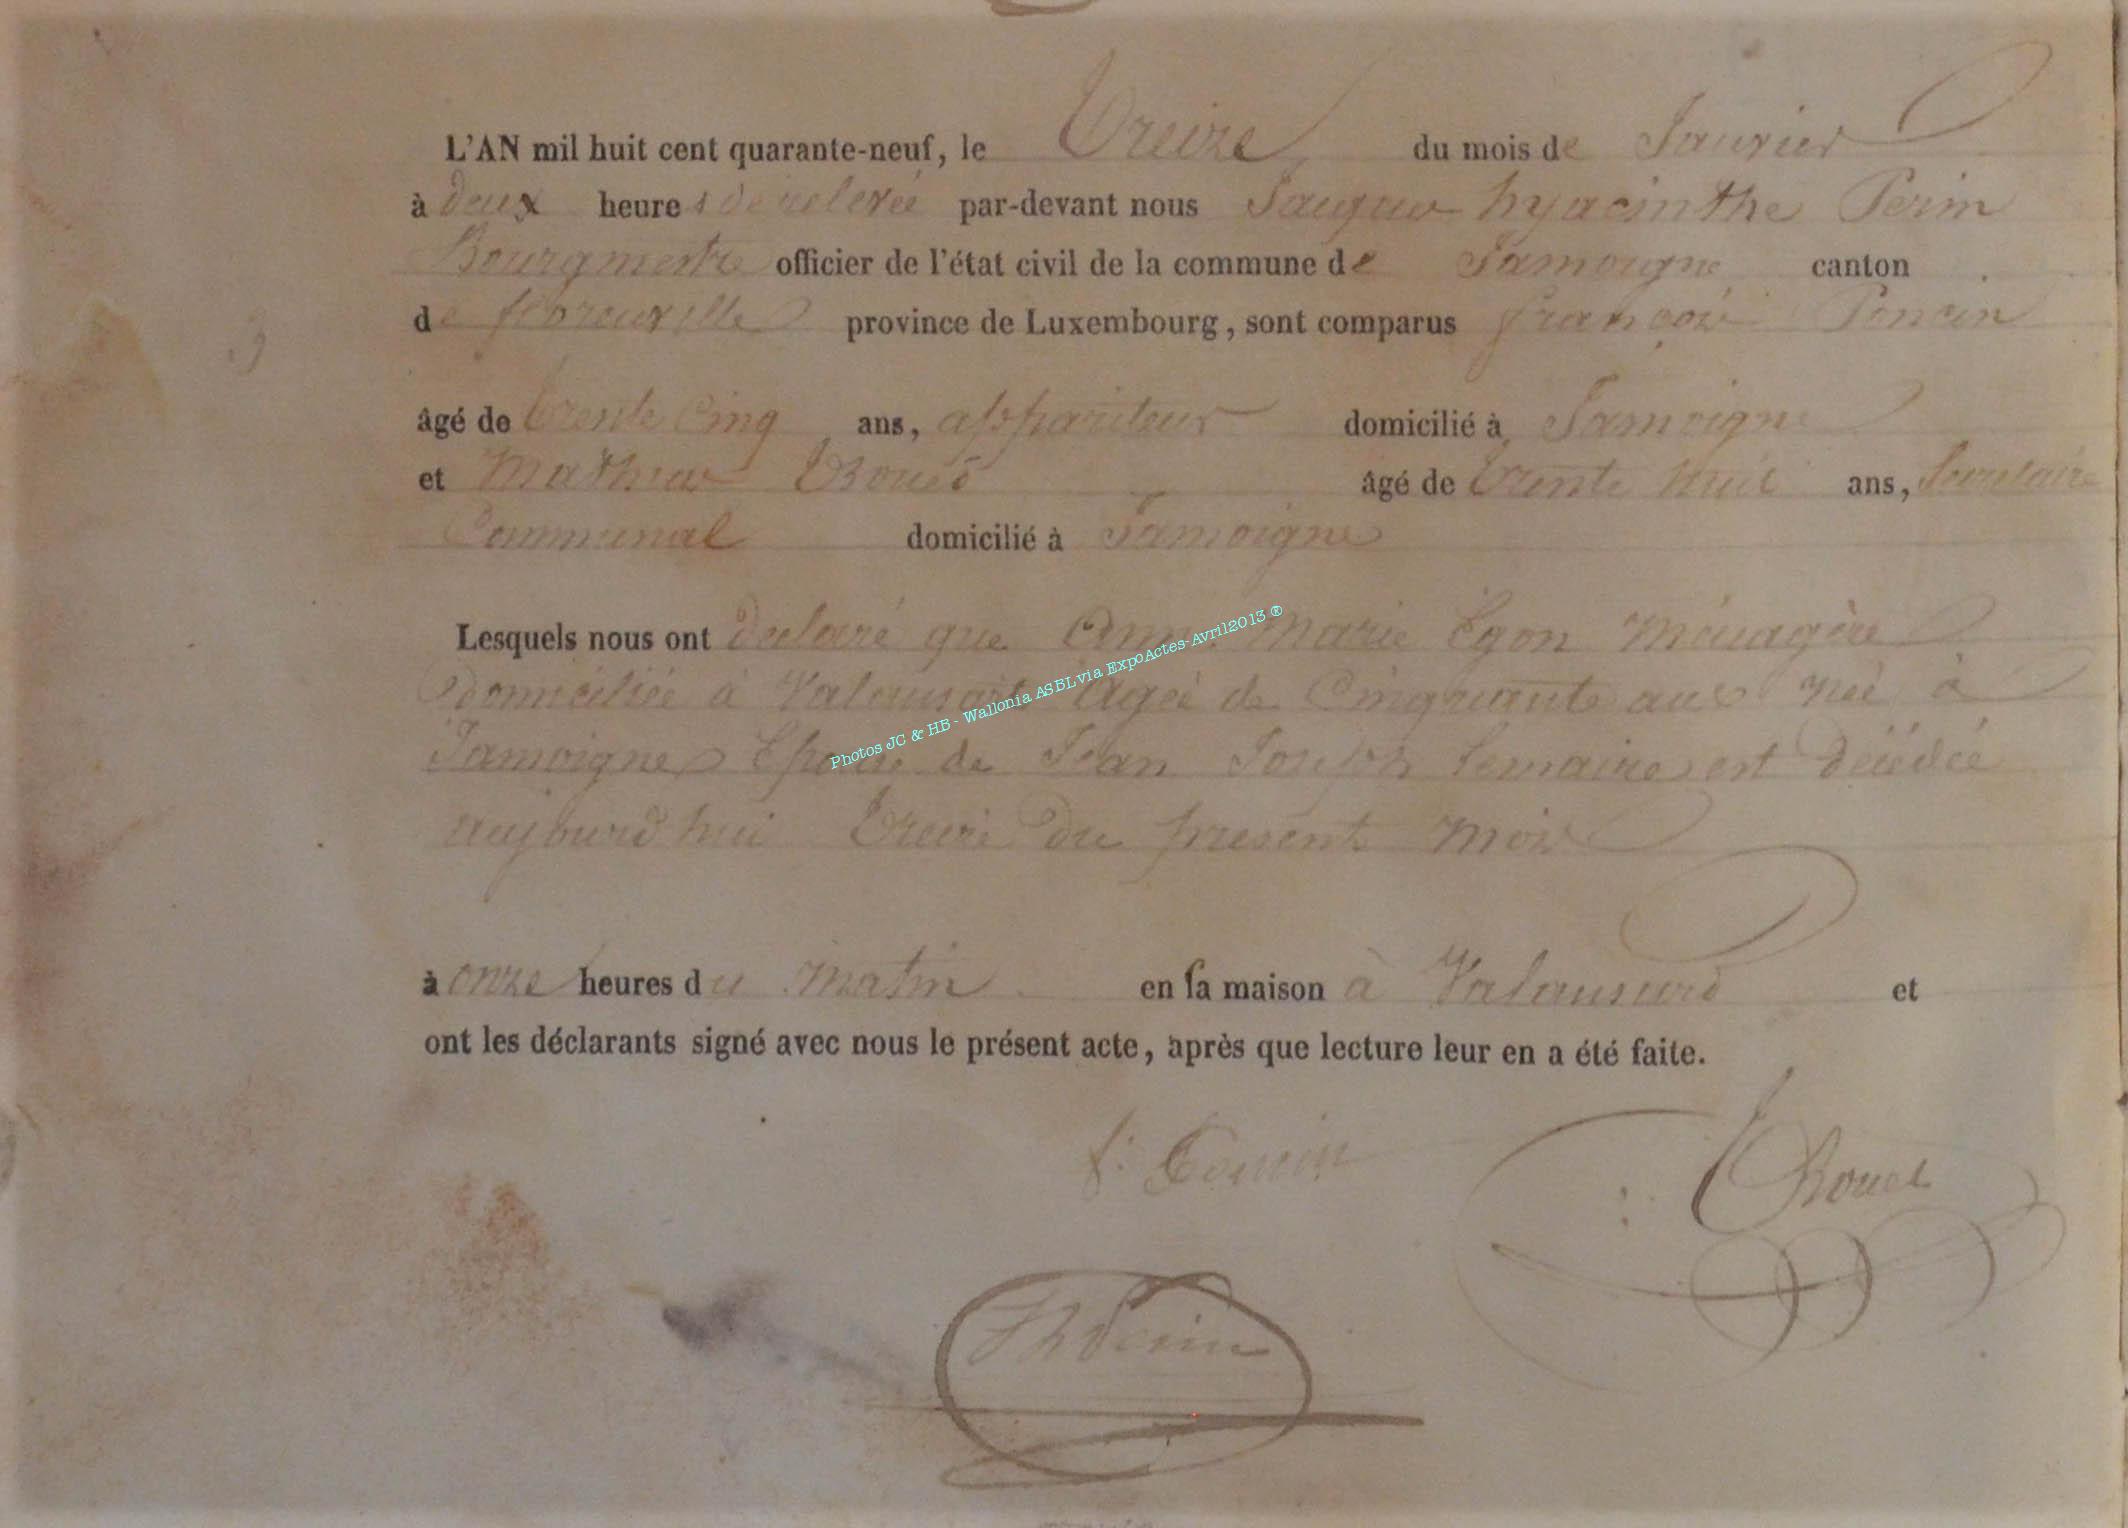 L'AN mil huit cent quarante-neuf, le Treize du mois de Janvier
à deux heures de relevée par-devant nous Jacques hyacinthe Perin
Bourgmestre officier de l'état civil de la commune de Jamoigne canton
de florenville province de Luxembourg, sont comparus françois Poncin
3
âgé de trente Cinq ans, appariteur domicilié à Jamoigne
et Mathieu Roués âgé de trente huit ans, Secretaire
Communal domicilié à Jamoigne
Lesquels nous ont declaré que Anne Marie Egon Ménagère
domiciliée à Valansart Agée de Cinquante ans née à
Jamoigne Epouse de Jean Joseph Lemaire est décédée
aujourd'hui Treize du present mois
Photos JC & HB - Wallonia ASBL via ExpoActes-Avril2013 ®
à onze heures du Matin en sa maison à Valansard et
ont les déclarants signé avec nous le présent acte, après que lecture leur en a été faite.
f. Poncin
Rouet
JhPerin